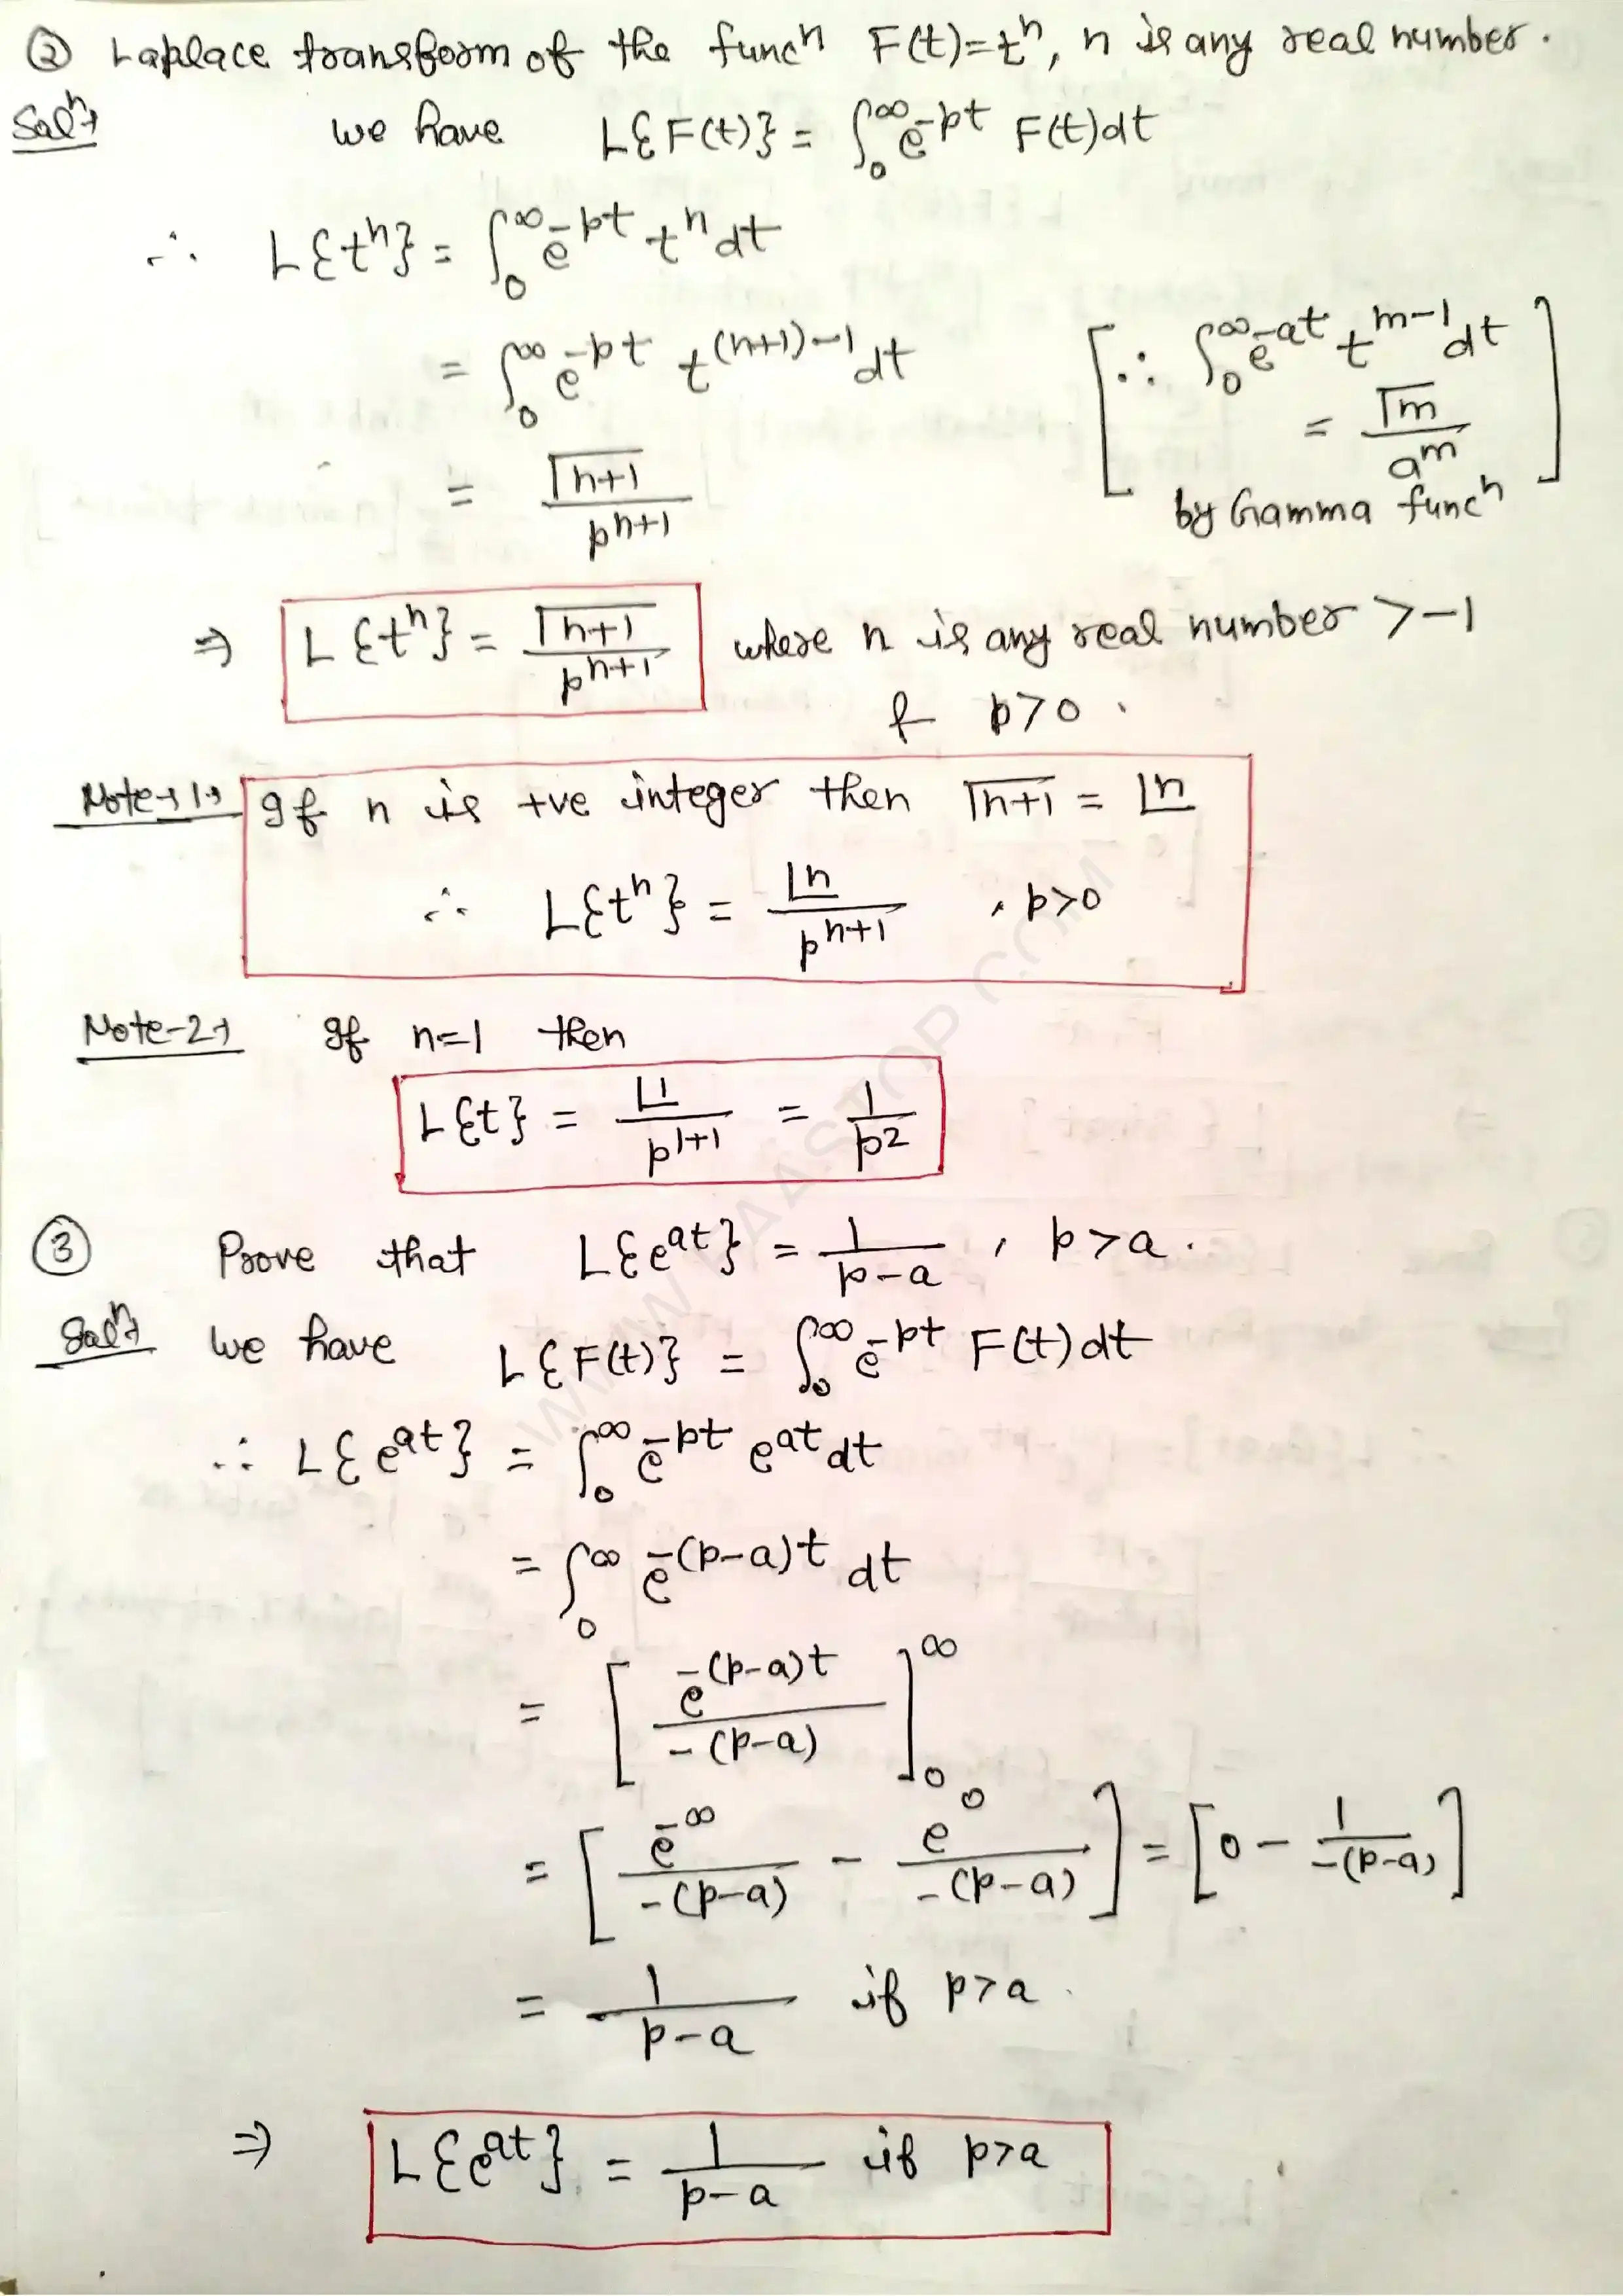 ② Laplace transform of the funcⁿ F(t)=tⁿ, n is any real number.
Solⁿ→ we have L{F(t)} = ∫₀^∞ e^{-pt} F(t)dt
∴ L{tⁿ} = ∫₀^∞ e^{-pt} tⁿ dt
= ∫₀^∞ e^{-pt} t^{(n+1)-1} dt [∵ ∫₀^∞ e^{-at} t^{m-1} dt
= Γm / a^m ]
= Γ(n+1) / p^{n+1} by Gamma funcⁿ
⇒ L{tⁿ} = Γ(n+1) / p^{n+1} where n is any real number > -1
& p>0.
Note→1→ If n is +ve integer then Γ(n+1) = ∟n
∴ L{tⁿ} = ∟n / p^{n+1} , p>0
Note-2→ If n=1 then
L{t} = ∟1 / p^{1+1} = 1 / p²
③ Prove that L{e^{at}} = 1 / (p-a) , p>a.
Solⁿ→ we have L{F(t)} = ∫₀^∞ e^{-pt} F(t)dt
∴ L{e^{at}} = ∫₀^∞ e^{-pt} e^{at} dt
= ∫₀^∞ e^{-(p-a)t} dt
= [ e^{-(p-a)t} / -(p-a) ]₀^∞
= [ e^{-∞} / -(p-a) - e^0 / -(p-a) ] = [ 0 - 1 / -(p-a) ]
= 1 / (p-a) if p>a.
⇒ L{e^{at}} = 1 / (p-a) if p>a
WWW.VAASTOP.COM